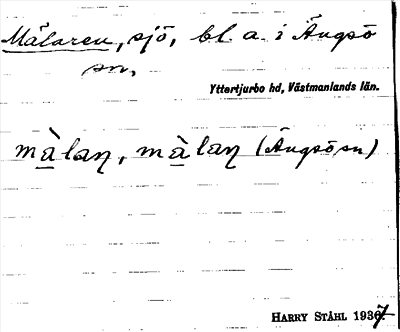 Mälaren, sjö, bl. a. i Ängsö
sn,
Yttertjurbo hd, Västmanlands län.
mà̲lan̡, mà̲lan̡ (Ängsö sn)
HARRY STÅHL 1937